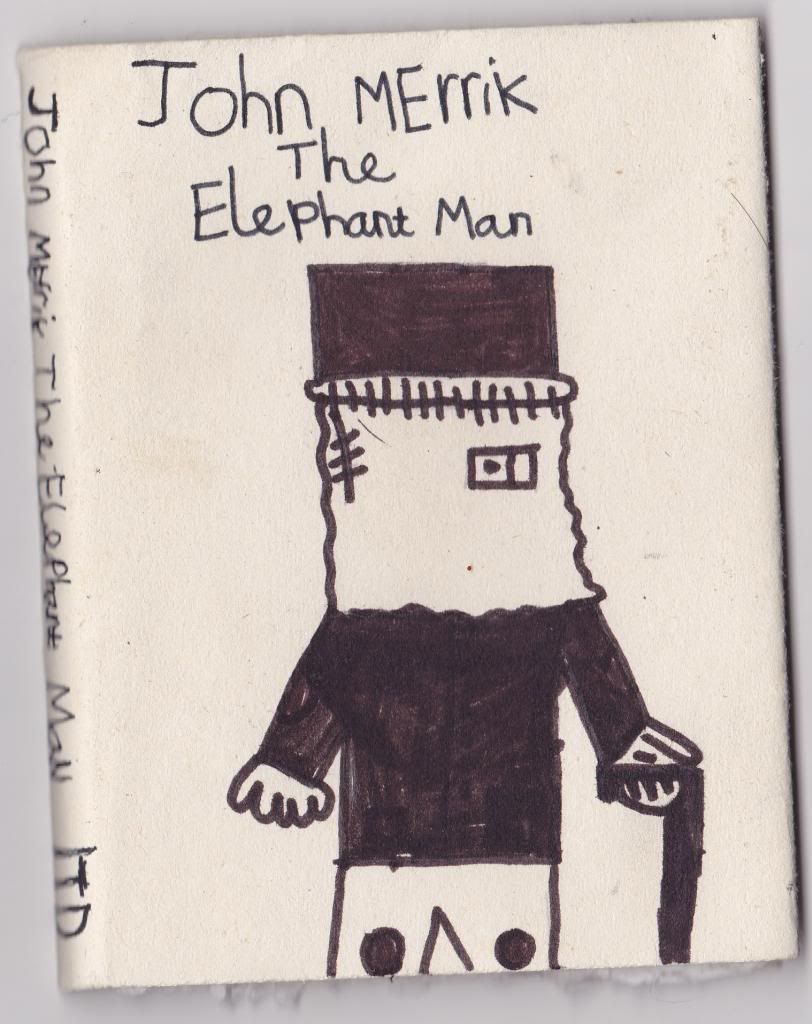 John MErrik
The
Elephant Man
John MErrik The Elephant Man LTD